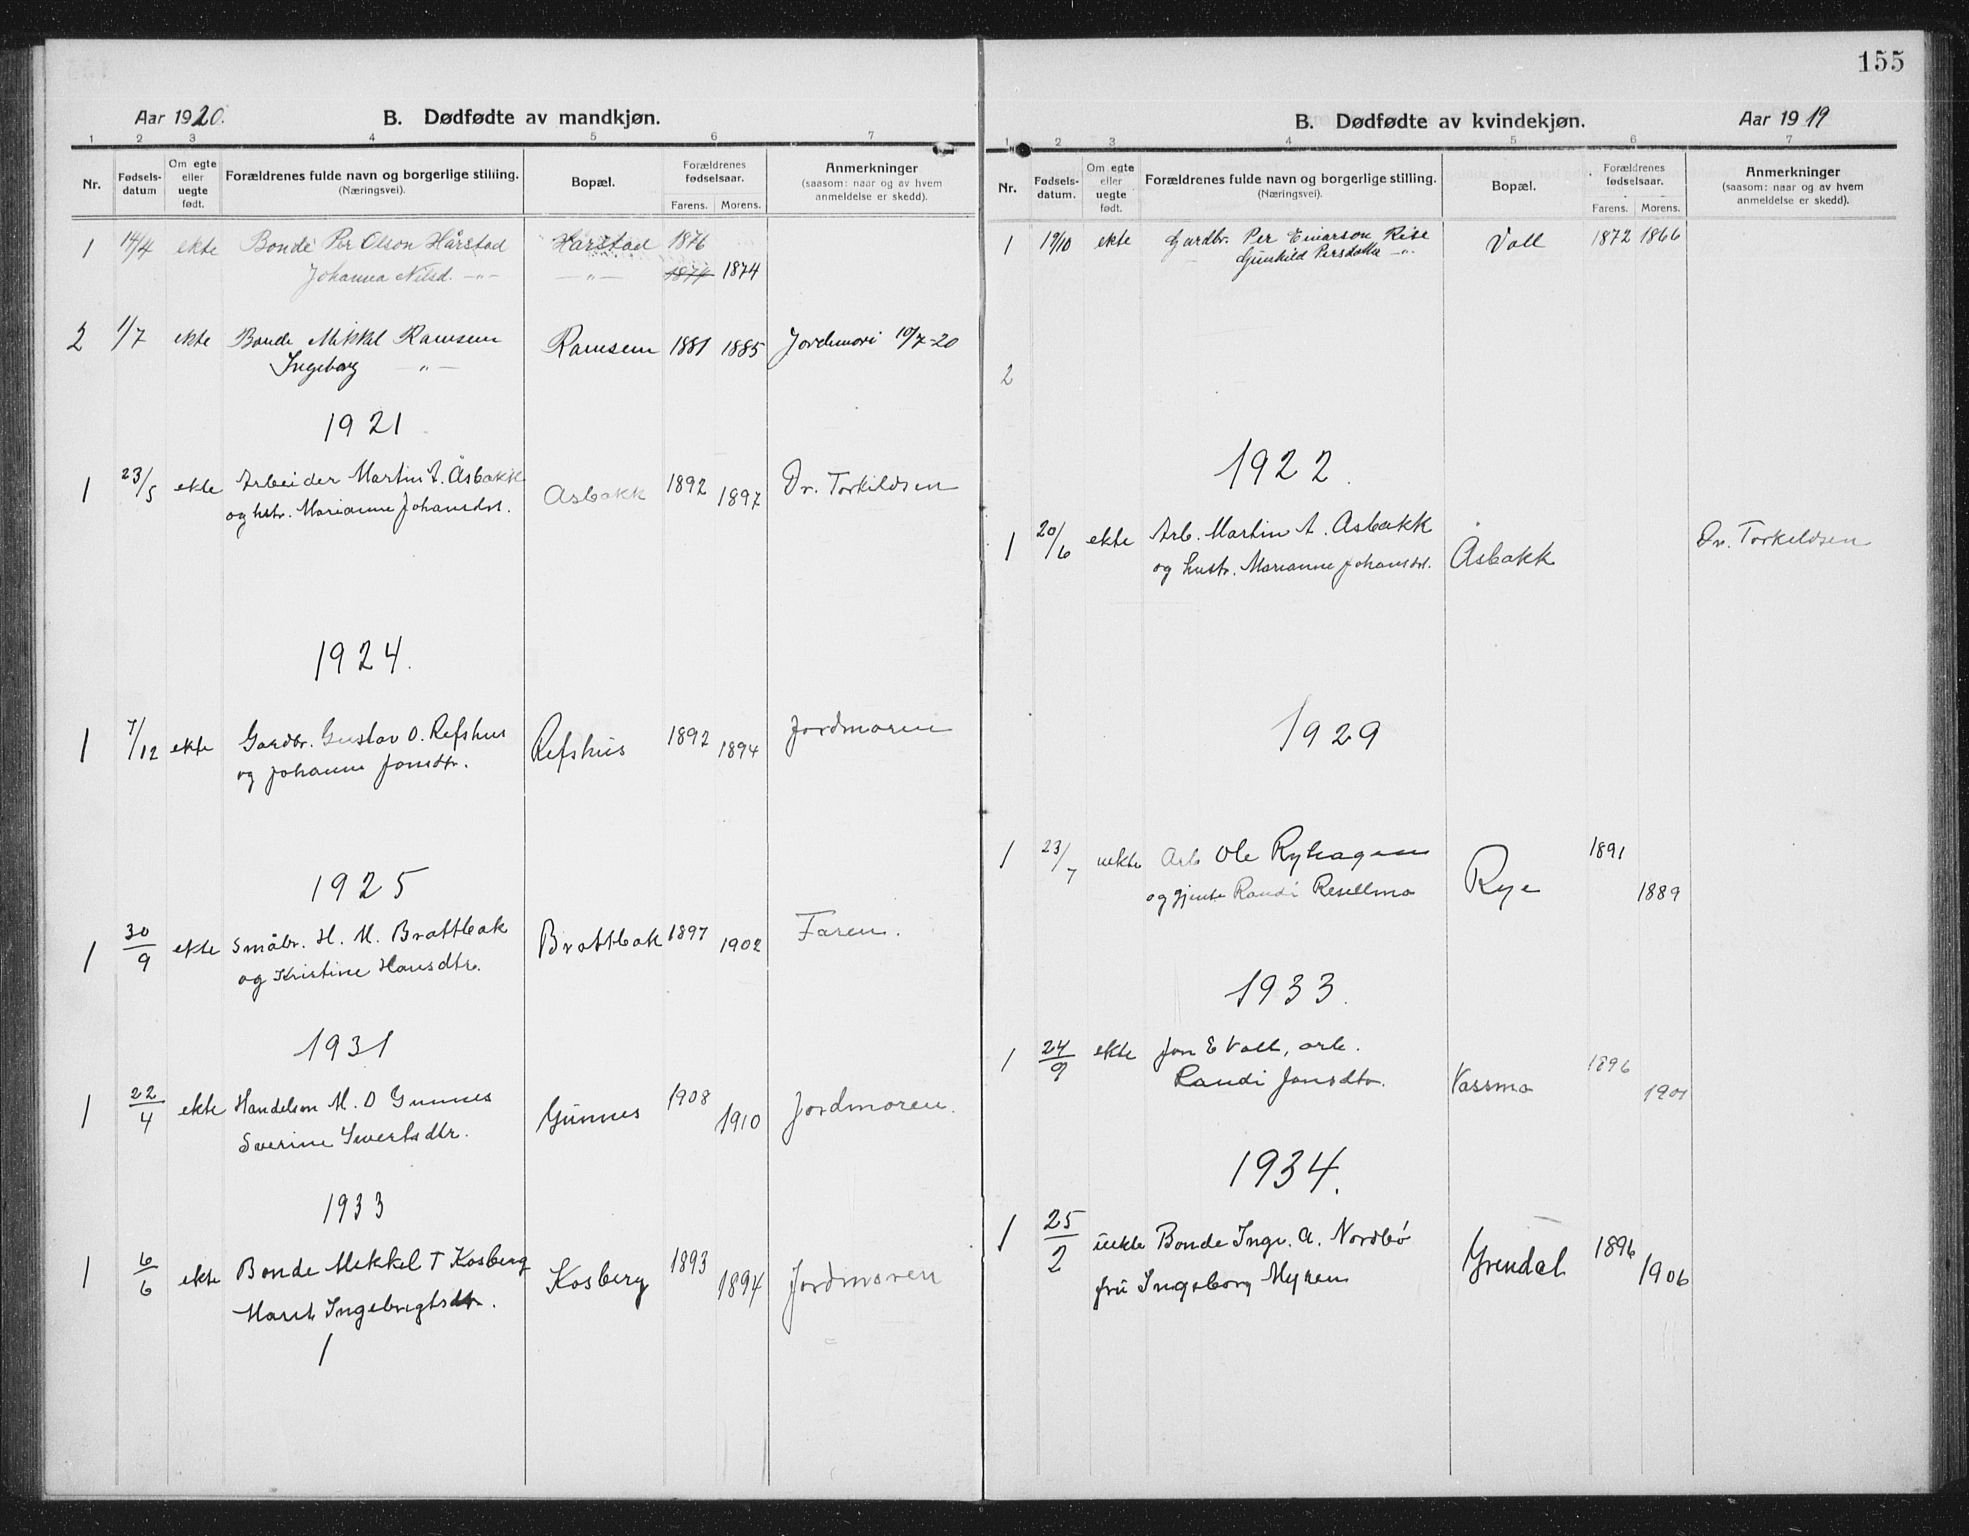 Aar 1920.
B. Dødfødte av mandkjøn.
1 2 3 4 5 6 7
Nr.
Fødsels-datum
Om egte eller uegte født.
Forældrenes fulde navn og borgerlige stilling.
(Næringsvei).
Bopæl.
Forældrenes fødselsaar.
Farens. Morens.
Anmerkninger
(saasom: naar og av hvem anmeldelse er skedd).
1 14/4 ekte Bonde Per Olson Hårstad Harstad 1876
Johanna Nilsd. -"- -"- 1874 1874
2 1/7 ekte Bonde Mikkel Ramsem Ramsem 1881 1885 Jordemori 10/7-20
Ingeborg -"-
1921
1 23/5 ekte Arbeider Martin A. Åsbakk Åsbakk 1892 1897 Dr. Torkildsen
og hstr. Marianne Johansdtr.
1924.
1 7/12 ekte Gardbr. Gustav O. Refshus Refshus 1892 1894 Jordmoren
og Johanne Jonsdtr.
1925
1 30/9 ekte Småbr. H. M. Brattbak Brattbak 1897 1902 Faren.
og Kristine Hansdtr.
1931
1 22/4 ekte Handelsm M. O Gunnes Gunnes 1908 1910 Jordmoren.
Sverine Sivertsdtr.
1933
1 6/6 ekte Bonde Mekkel T Kosberg Kosberg 1893 1894 Jordmoren
Marit Ingebrigtsdtr.
1
155
B. Dødfødte av kvindekjøn.
Aar 1919
1 2 3 4 5 6 7
Nr.
Fødsels-datum.
Om egte eller uegte født.
Forældrenes fulde navn og borgerlige stilling.
(Næringsvei).
Bopæl.
Forældrenes fødselsaar.
Farens. Morens.
Anmerkninger
(saasom: naar og av hvem anmeldelse er skedd).
1 19/10 ekte Gardbr. Per Einarson Rise Voll 1872 1866
Gunhild Persdotter -"-
2
1922.
1 20/6 ekte Arb. Martin A. Åsbakk Åsbakk Dr. Torkildsen
og hustr. Marianne Johansdtr.
1929
1 23/7 uekte Arb Ole Ryhagen Rye 1891
og gjente Randi Resellmo 1889
1933.
1 24/9 ekte Jon E Voll, arb. Vassmo 1896
Randi Jonsdtr. 1901
1934.
1 25/2 uekte Bonde Ingv. A. Nordbø Grendal 1896
fru Ingeborg Myren 1906